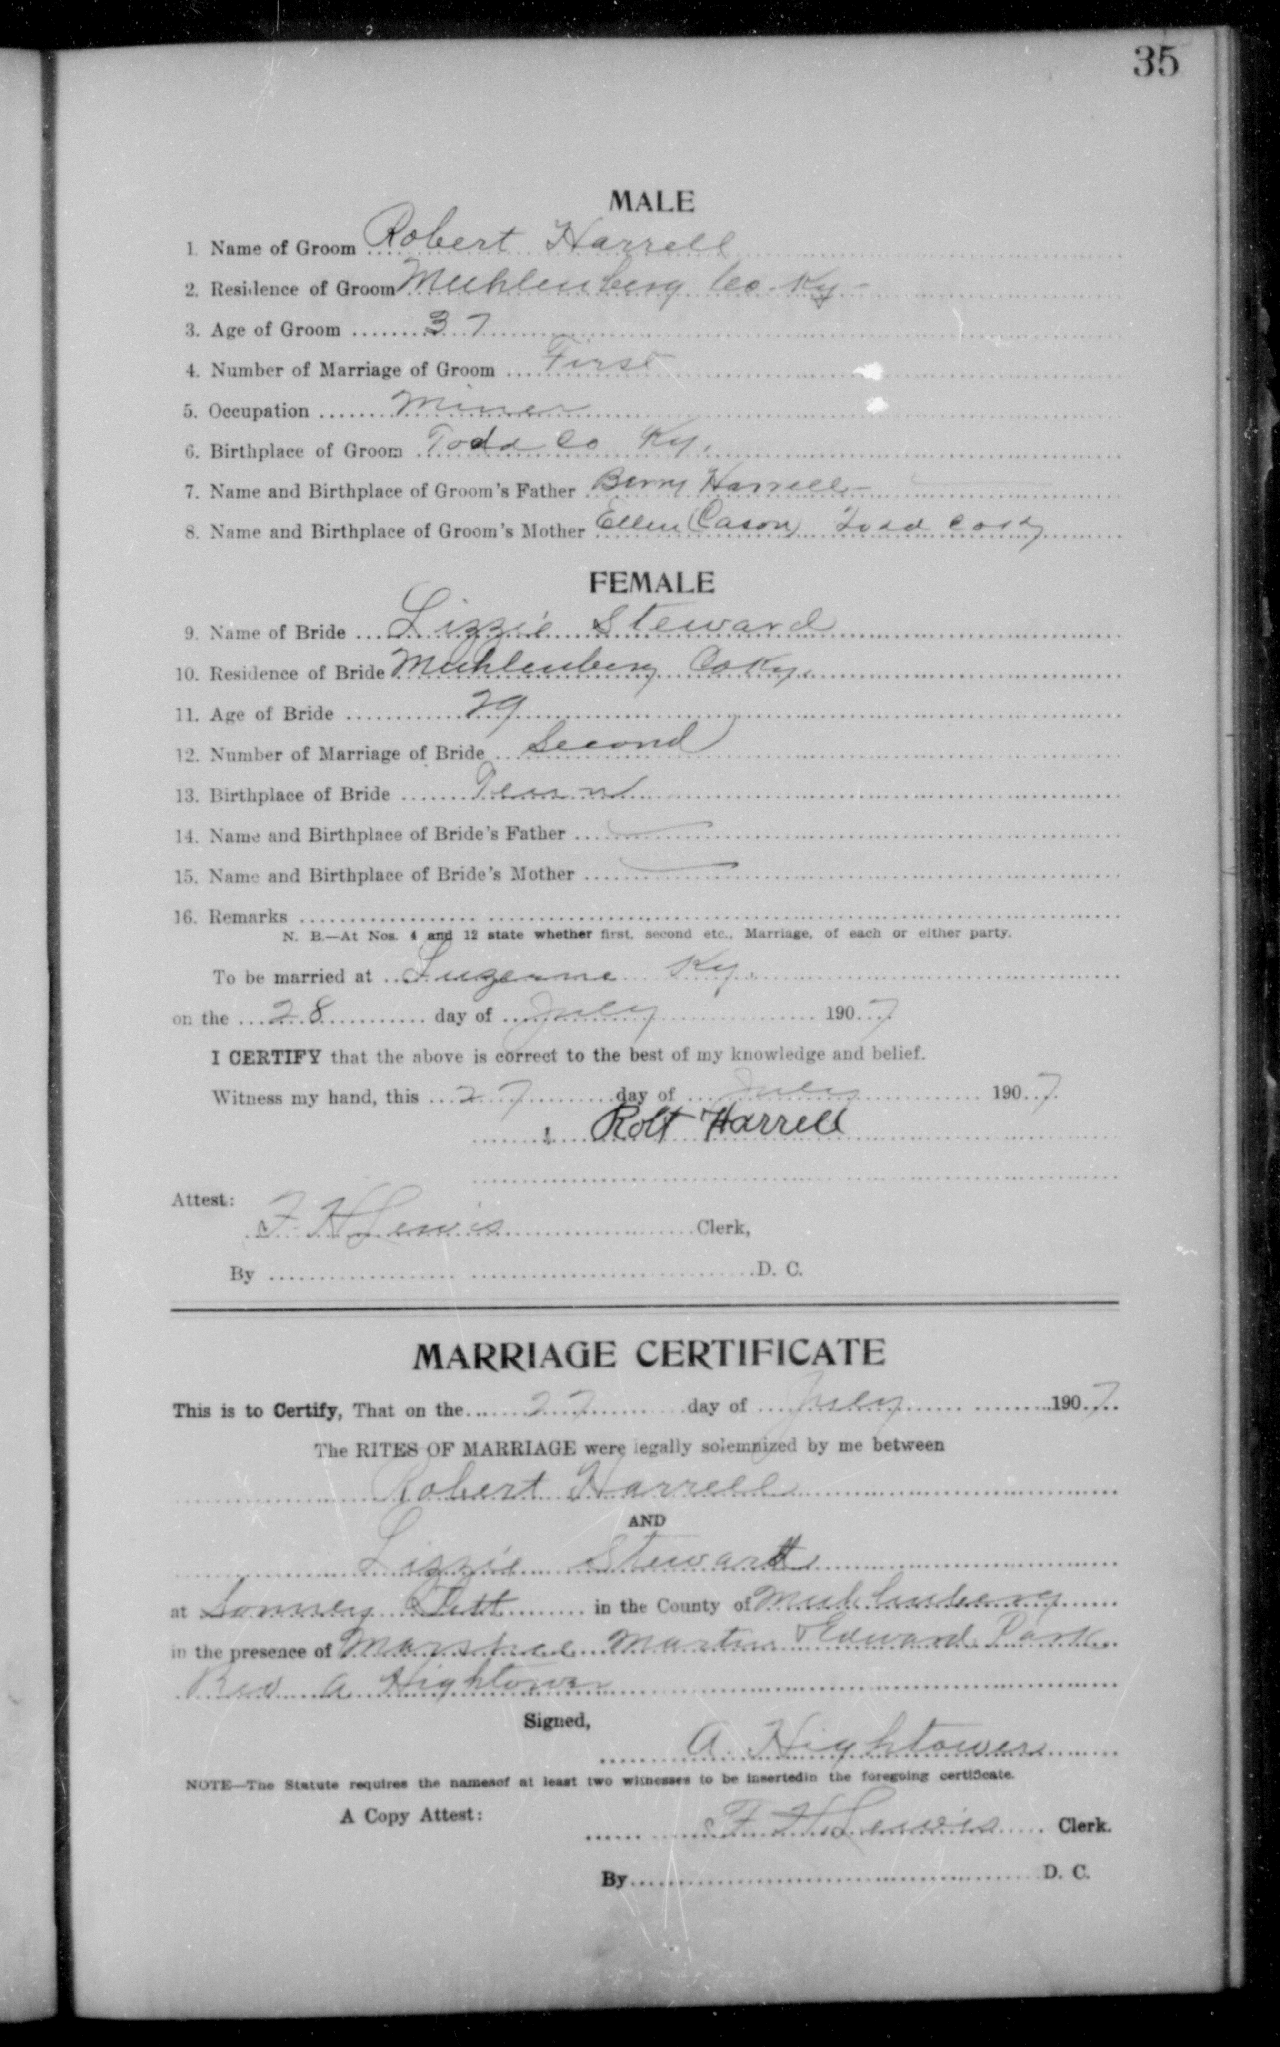 35
MALE
1. Name of Groom Robert Harrell
2. Residence of Groom Muhlenberg Co Ky
3. Age of Groom 37
4. Number of Marriage of Groom First
5. Occupation Miner
6. Birthplace of Groom Todd Co Ky.
7. Name and Birthplace of Groom's Father Berry Harrell
8. Name and Birthplace of Groom's Mother Ellen (Cason) Todd Co Ky
FEMALE
9. Name of Bride Lizzie Steward
10. Residence of Bride Muhlenberg Co Ky.
11. Age of Bride 29
12. Number of Marriage of Bride Second
13. Birthplace of Bride Tenn
14. Name and Birthplace of Bride's Father
15. Name and Birthplace of Bride's Mother
16. Remarks
N. B.—At Nos. 4 and 12 state whether first, second etc., Marriage, of each or either party.
To be married at Luzerne Ky.
on the 28 day of July 1907
I CERTIFY that the above is correct to the best of my knowledge and belief.
Witness my hand, this 27 day of July 1907
Robt Harrell
Attest:
F. H Lewis Clerk,
By D. C.
MARRIAGE CERTIFICATE
This is to Certify, That on the 27 day of July 1907
The RITES OF MARRIAGE were legally solemnized by me between
Robert Harrell
AND
Lizzie Steward
at in the County of Muhlenberg
in the presence of Martin Edward Park
Rev A Hightower
Signed,
A. Hightower
NOTE—The Statute requires the namesof at least two witnesses to be insertedin the foregoing certificate.
A Copy Attest:
F. H Lewis Clerk.
By D. C.